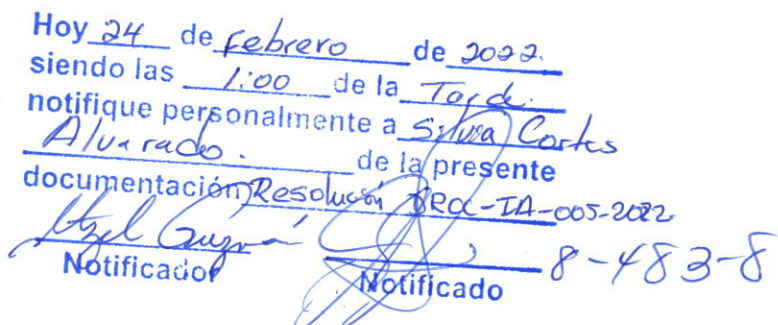 Hoy 24 de febrero de 2022.
siendo las 1:00 de la Tarde.
notifique personalmente a Silvia Cortes
Alvarado. de la presente
documentación Resolución DROC-IA-005-2022
Itzel Guzmán 8-483-8
Notificador Notificado